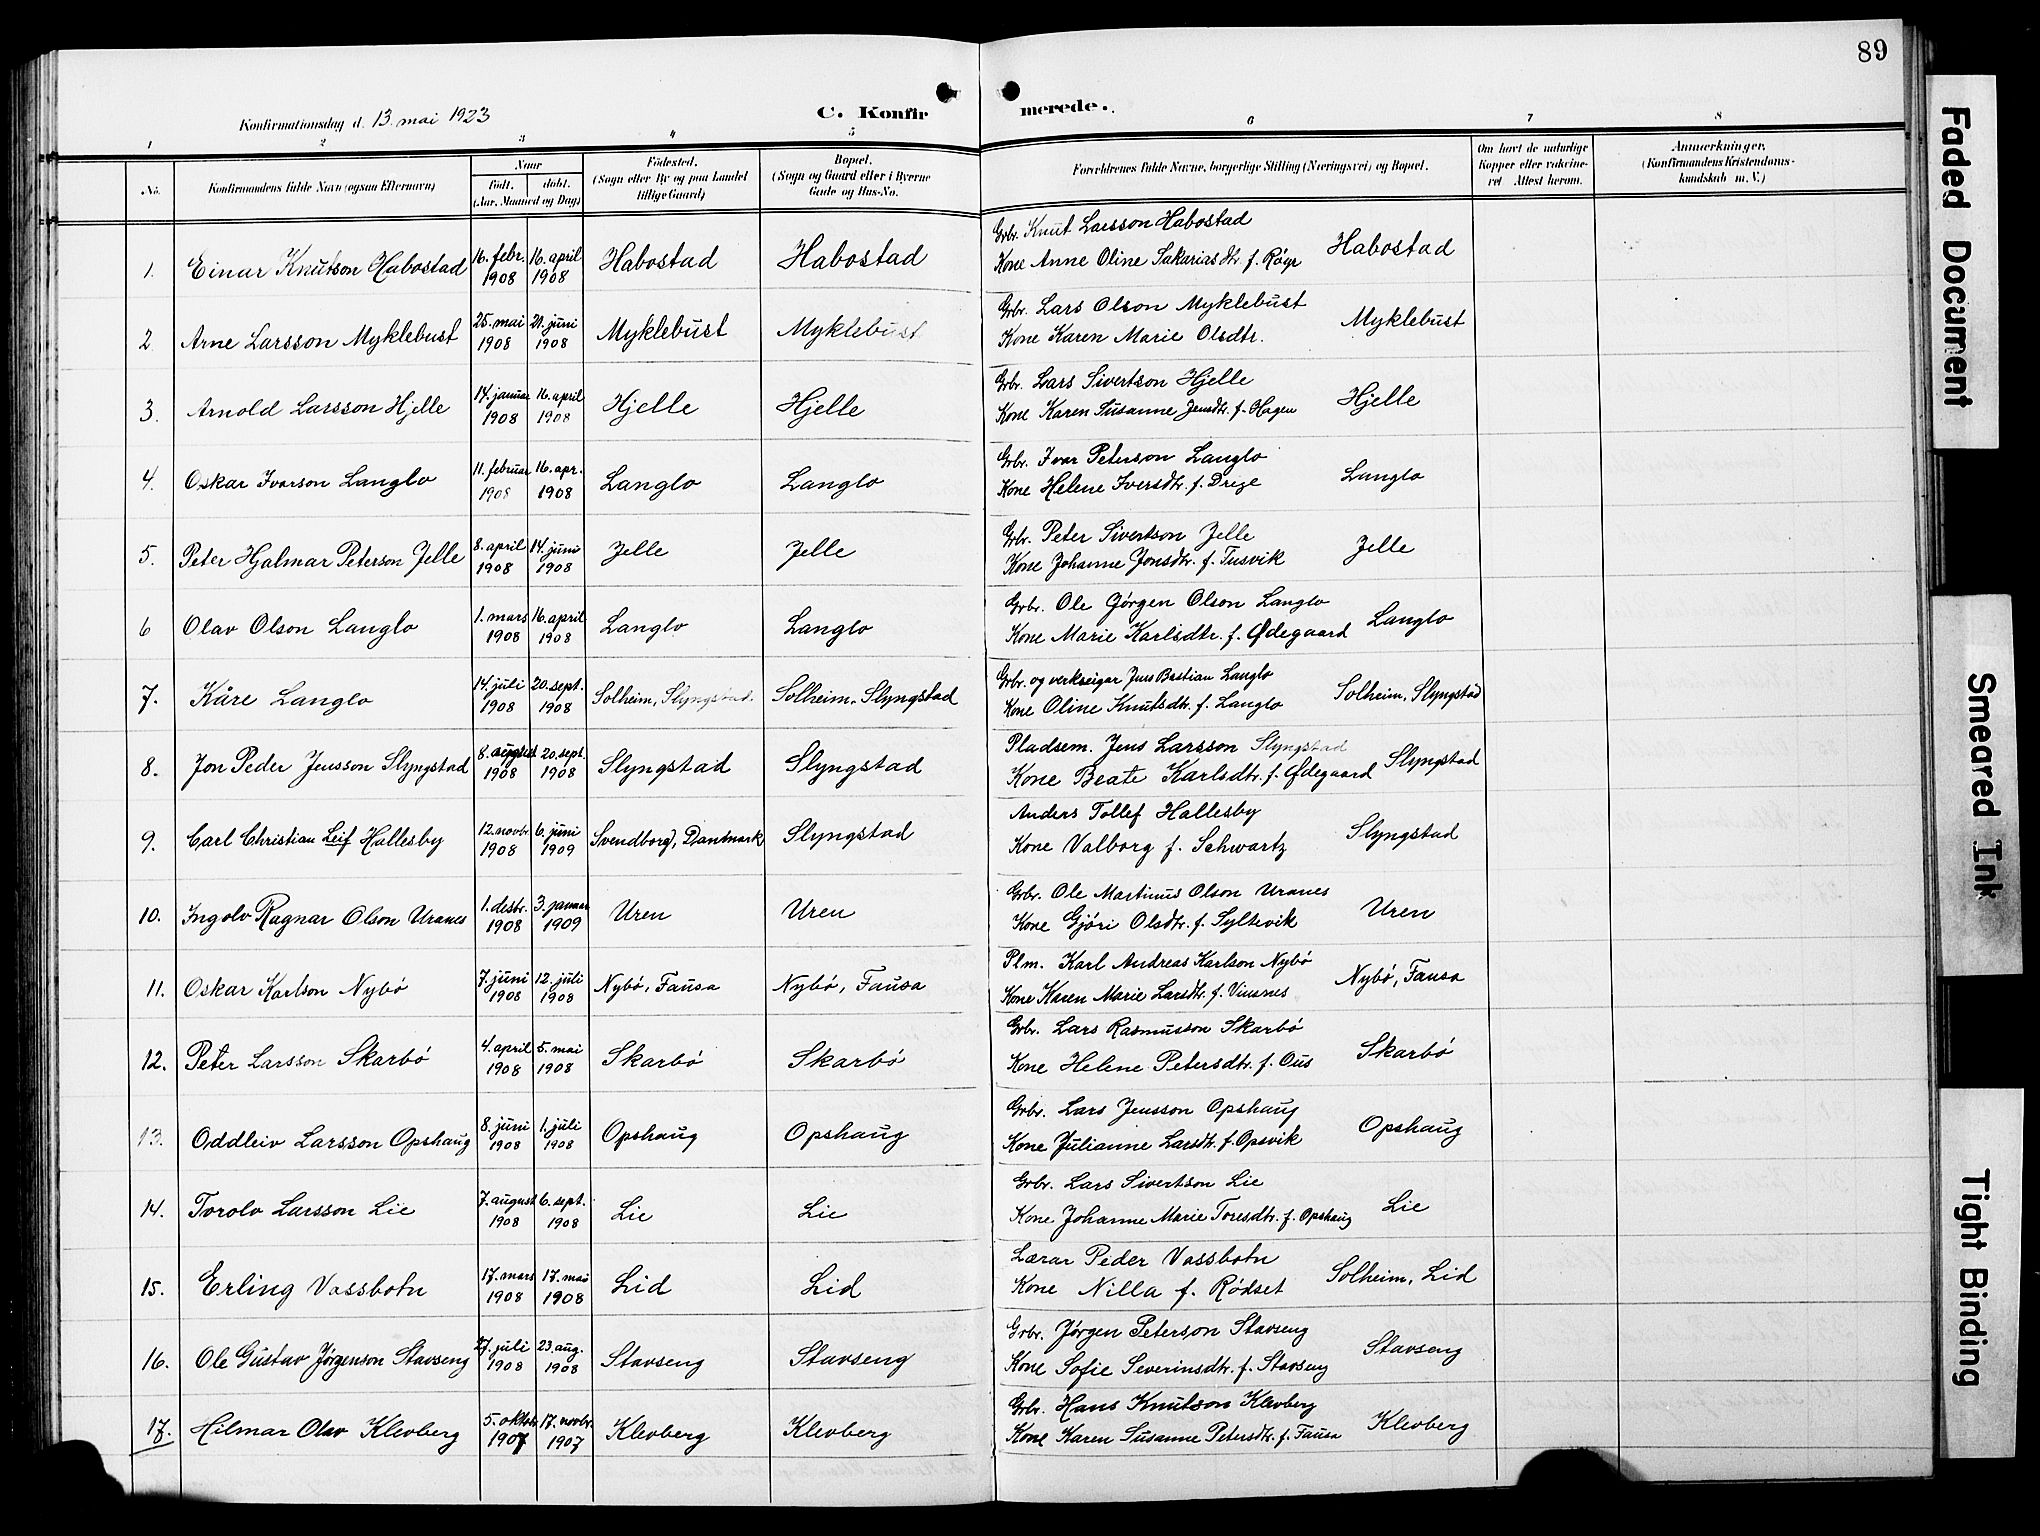 89
Konfirmationsdag d. 13. mai 1923
C. Konfirmerede.
1 2 3 4 5 6 7 8
No. Konfirmandens fulde Navn (ogsaa Efternavn) Naar født. døbt. (Aar, Maaned og Dag) Fødested. (Sogn eller By og paa Landet tillige Gaard) Bopæl. (Sogn og Gaard eller i Byerne Gade og Hus-No. Forældrenes fulde Navne, borgerlige Stilling (Næringsvei) og Bopæl. Om havt de naturlige Kopper eller vakcineret Attest herom. Anmærkninger. (Konfirmandens Kristendomskundskab m. V.)
1. Einar Knutson Habostad 16. febr. 1908 16. april 1908 Habostad Habostad Grbr. Knut Larsson Habostad
Kone Anne Oline Sakariasdtr. f. Røyr Habostad
2. Arne Larsson Myklebust 25. mai 1908 21. juni 1908 Myklebust Myklebust Grbr. Lars Olson Myklebust
Kone Karen Marie Olsdtr. Myklebust
3. Arnold Larsson Hjelle 14. januar 1908 16. april 1908 Hjelle Hjelle Grbr. Lars Sivertson Hjelle
Kone Karen Susanne Jensdtr. f. Hagen Hjelle
4. Oskar Ivarson Langlo 11. februar 1908 16. apr. 1908 Langlo Langlo Grbr. Ivar Peterson Langlo
Kone Helene Iversdtr. f. Drege Langlo
5. Peter Hjalmar Peterson Jelle 8. april 1908 14. juni 1908 Jelle Jelle Grbr. Peter Sivertson Jelle
Kone Johanne Jonsdtr. f. Tusvik Jelle
6 Olav Olson Langlo 1. mars 1908 16. april 1908 Langlo Langlo Grbr. Ole Jørgen Olson Langlo
Kone Marie Karlsdtr. f. Ødegaard Langlo
7. Kåre Langlo 14. juli 1908 20. sept. 1908 Solheim, Slyngstad. Solheim, Slyngstad Grbr. og verkseigar Jens Bastian Langlo
Kone Oline Knutsdtr. f. Langlo Solheim, Slyngstad
8. Jon Peder Jensson Slyngstad 8. august 1908 20. sept. 1908 Slyngstad Slyngstad Pladsem. Jens Larsson Slyngstad
Kone Beate Karlsdtr. f. Ødegaard Slyngstad
9. Carl Christian Leif Hallesby 12. novbr 1908 6. juni 1909 Svendborg, Danmark Slyngstad Anders Tollef Hallesby
Kone Valborg f. Schwartz Slyngstad
10. Ingolv Ragnar Olson Uranes 1. desbr. 1908 3. januar 1909 Uren Uren Grbr. Ole Martinus Olson Uranes
Kone Gjøri Olsdtr. f. Syltevik Uren
11. Oskar Karlson Nybø 7. juni 1908 12. juli 1908 Nybø, Fausa Nybø, Fausa Plm. Karl Andreas Karlson Nybø
Kone Karen Marie Larsdtr. f. Viusnes Nybø, Fausa
12. Peter Larsson Skarbø 4. april 1908 5. mai 1908 Skarbø Skarbø Grbr. Lars Rasmusson Skarbø
Kone Helene Petersdtr. f. Ous Skarbø
13. Oddleiv Larsson Opshaug 8. juni 1908 1. juli 1908 Opshaug Opshaug Grbr. Lars Jensson Opshaug
Kone Julianne Larsdtr. f. Opsvik Opshaug
14. Torolv Larsson Lie 7. august 1908 6. sept. 1908 Lie Lie Grbr. Lars Sivertson Lie
Kone Johanne Marie Toresdtr. f. Opshaug Lie
15. Erling Vassbotn 17. mars 1908 17. mai 1908 Lid Lid Lærar Peder Vassbotn
Kone Nilla f. Rødset Solheim, Lid
16. Ole Gustav Jørgenson Stavseng 27. juli 1908 23. aug. 1908 Stavseng Stavseng Grbr. Jørgen Peterson Stavseng
Kone Sofie Severinsdtr. f. Stavseng Stavseng
17. Hilmar Olav Klevberg 5. oktob. 1907 17. novbr. 1907 Klevberg Klevberg Grbr. Hans Knutson Klevberg
Kone Karen Susanne Petersdtr. f. Fausa Klevberg
Faded Document
Smeared Ink
Tight Binding